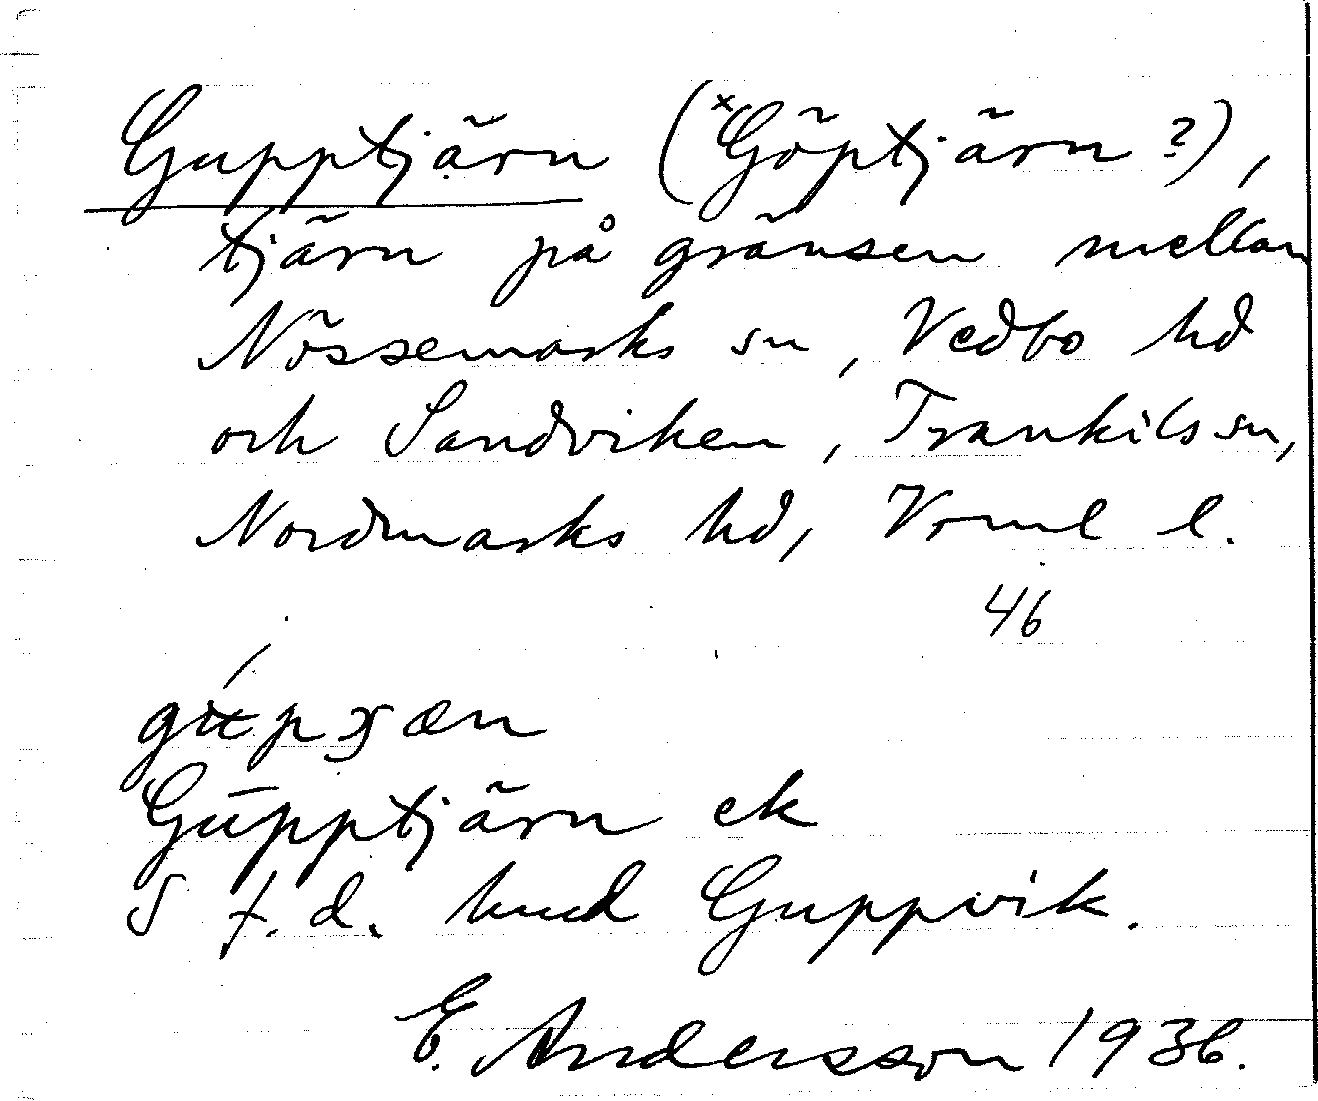 Gupptjärn (*Göptjärn?),
tjärn på gränsen mellan
Nössemarks sn, Vedbo hd
och Sandviken, Trankils sn,
Nordmarks hd, Vrml l.
46
Gūpptjärn ek
S f.d. hmd Guppvik.
E. Andersson 1936.